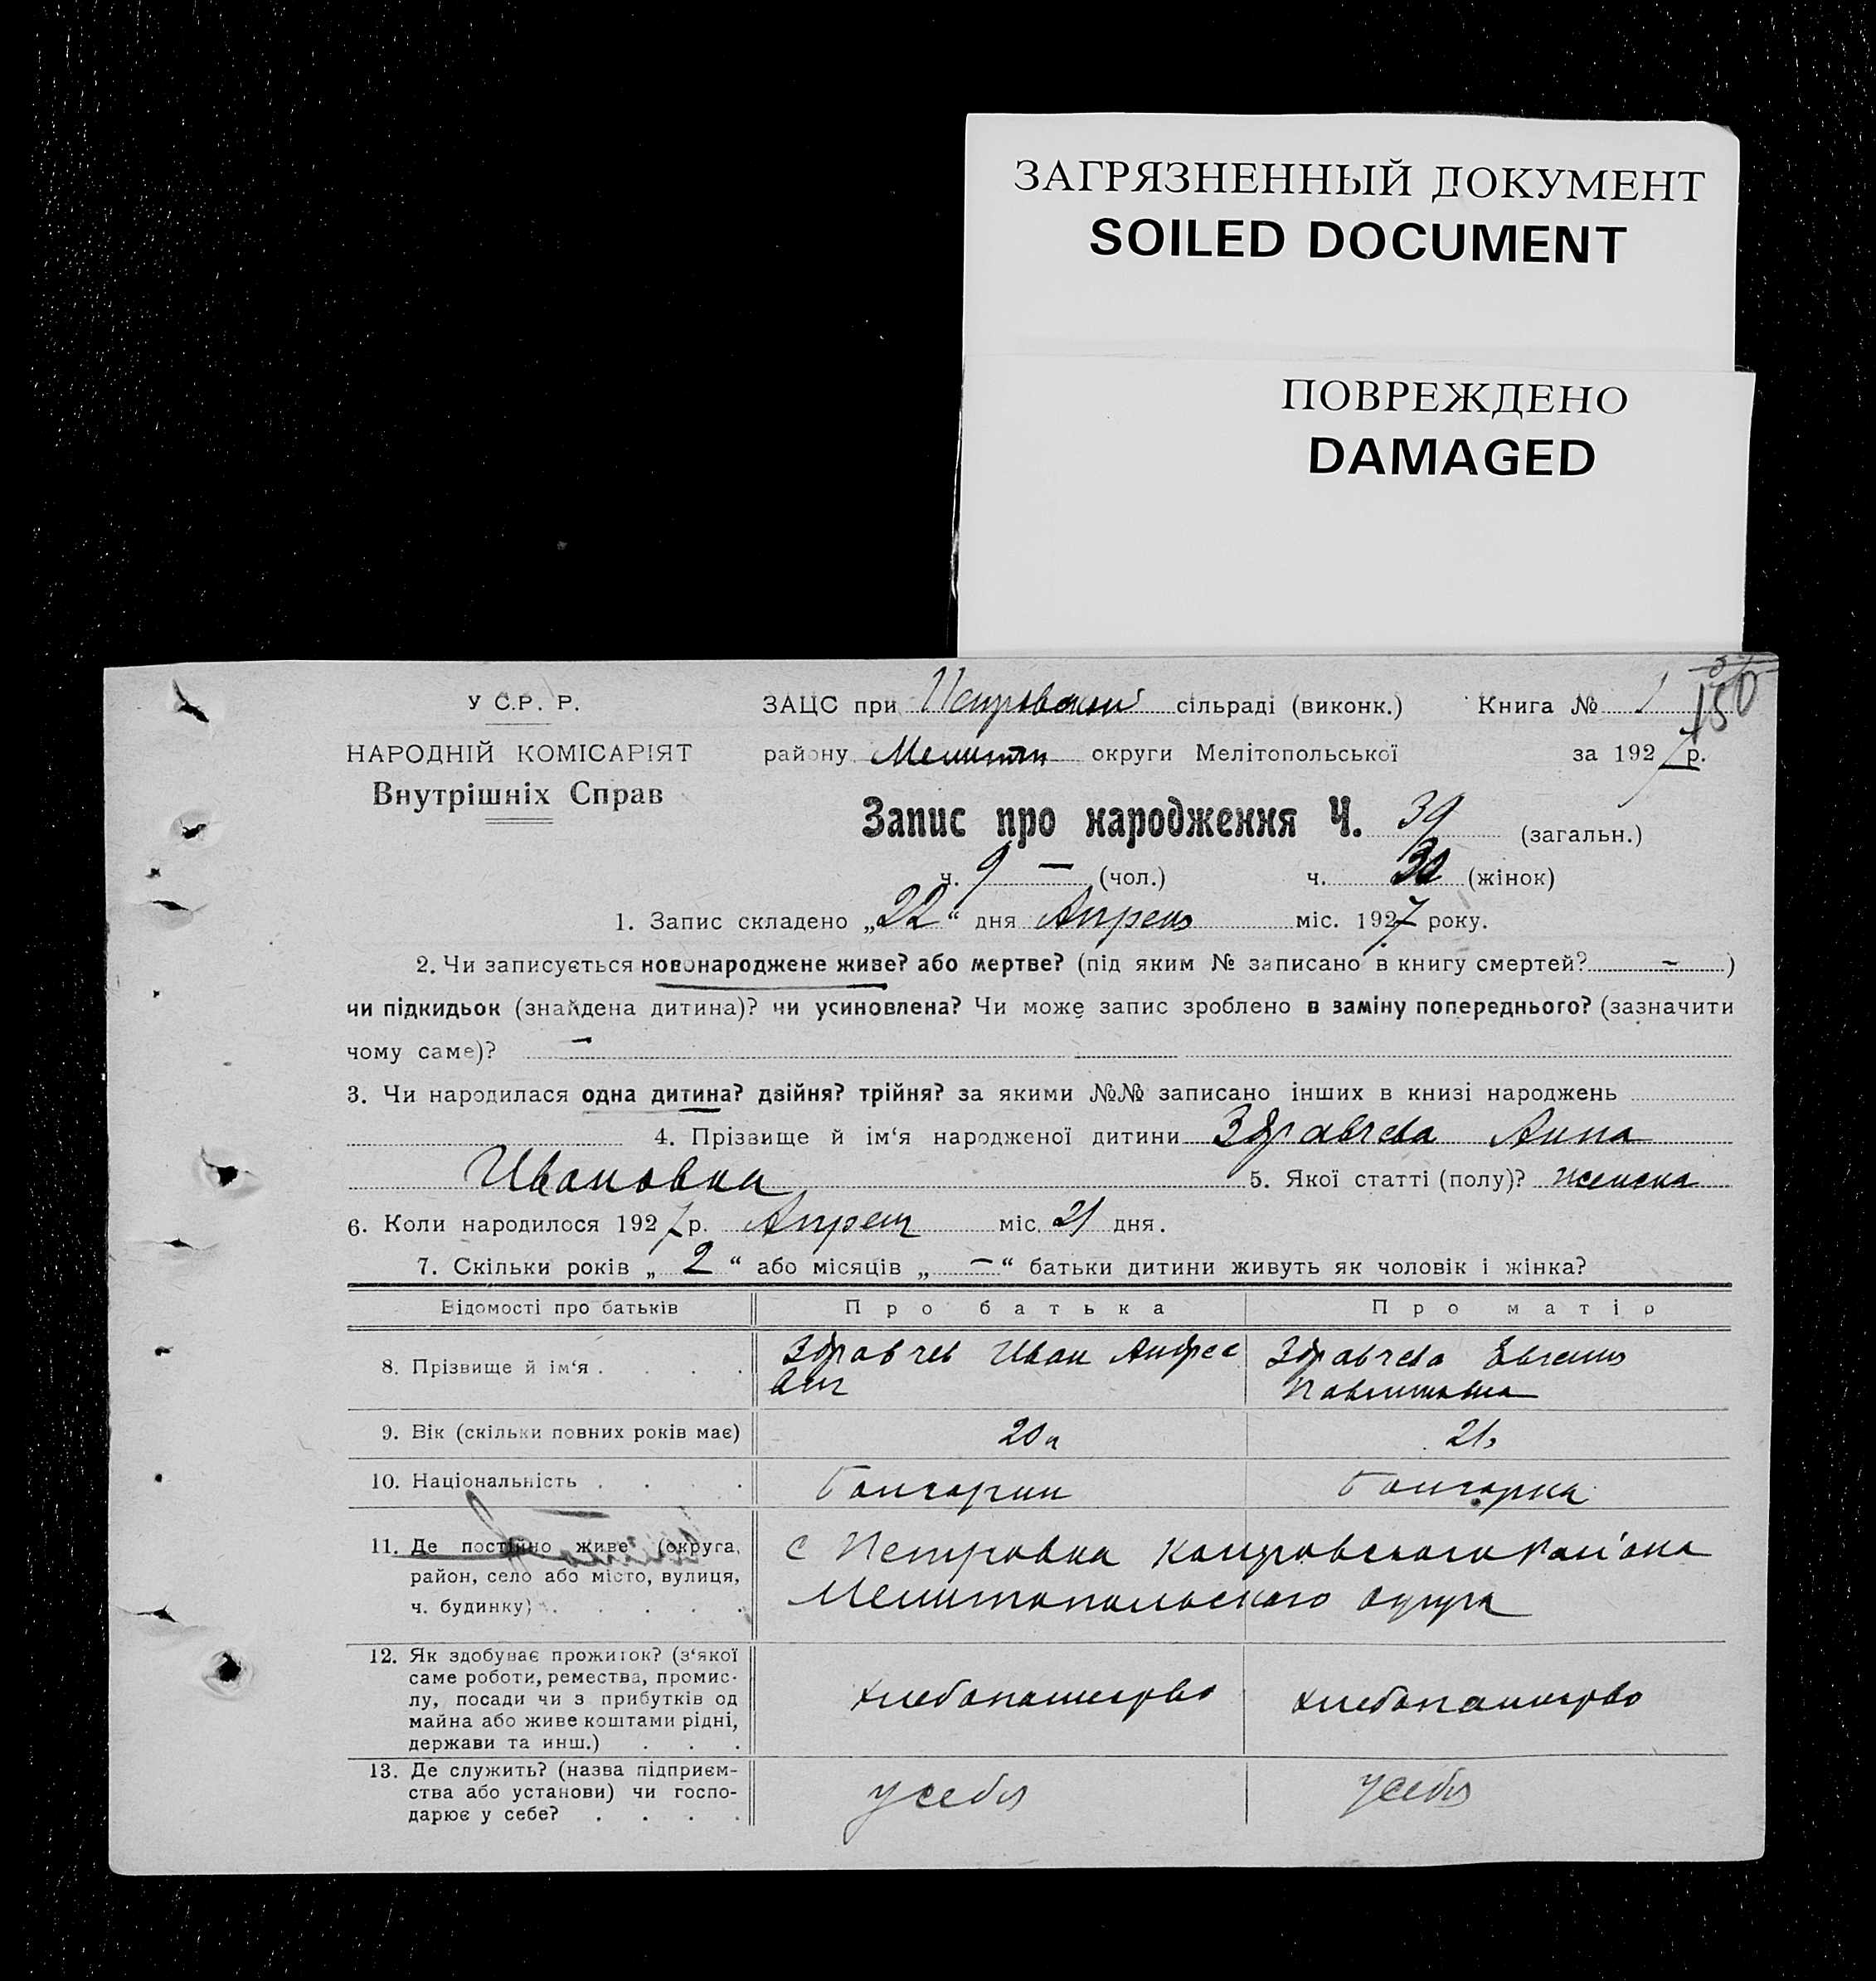 ЗАГРЯЗНЕННЫЙ ДОКУМЕНТ
SOILED DOCUMENT
ПОВРЕЖДЕНО
DAMAGED
150
У С.Р. Р.
ЗАЦС при Петровской сільраді (виконк.) Книга № 1
НАРОДНІЙ КОМІСАРІЯТ
району округи Мелітопольської за 1927 р.
Внутрішніх Справ
Запис про народження Ч. 39 (загальн.)
ч. 9 — (чол.) ч. 30 (жінок)
1. Запис складено „22“ дня Апрель міс. 1927 року.
2. Чи записується новонароджене живе? або мертве? (під яким № записано в книгу смертей? – )
чи підкидьок (знайдена дитина)? чи усиновлена? Чи може запис зроблено в заміну попереднього? (зазначити
чому саме)? –
3. Чи народилася одна дитина? двійня? трійня? за якими №№ записано інших в книзі народжень
4. Прізвище й ім‘я народженої дитини Здравчева Анна
Ивановна 5. Якої статті (полу)? женска
6. Коли народилося 1927 р. Апреля міс. 21 дня.
7. Скільки років „ 2 “ або місяців „ – “ батьки дитини живуть як чоловік і жінка?
Відомості про батьків Про батька Про матір
8. Прізвище й ім‘я . . . . Здравчев Иван Андрее Здравчева Евгения
вич
9. Вік (скільки повних років має) 20 21
10. Національність . . . . Болгарин Болгарка
11. Де постійно живе (округа, с Петровка района
район, село або місто, вулиця, Мелитопольского округа
ч. будинку) . . . . .
12. Як здобуває прожиток? (з‘якої
саме роботи, ремества, промис-
лу, посади чи з прибутків од хлебопашество хлебопашество
майна або живе коштами рідні,
держави та инш.) . . .
13. Де служить? (назва підприєм-
ства або установи) чи госпо- у себя у себя
дарює у себе? . . . .